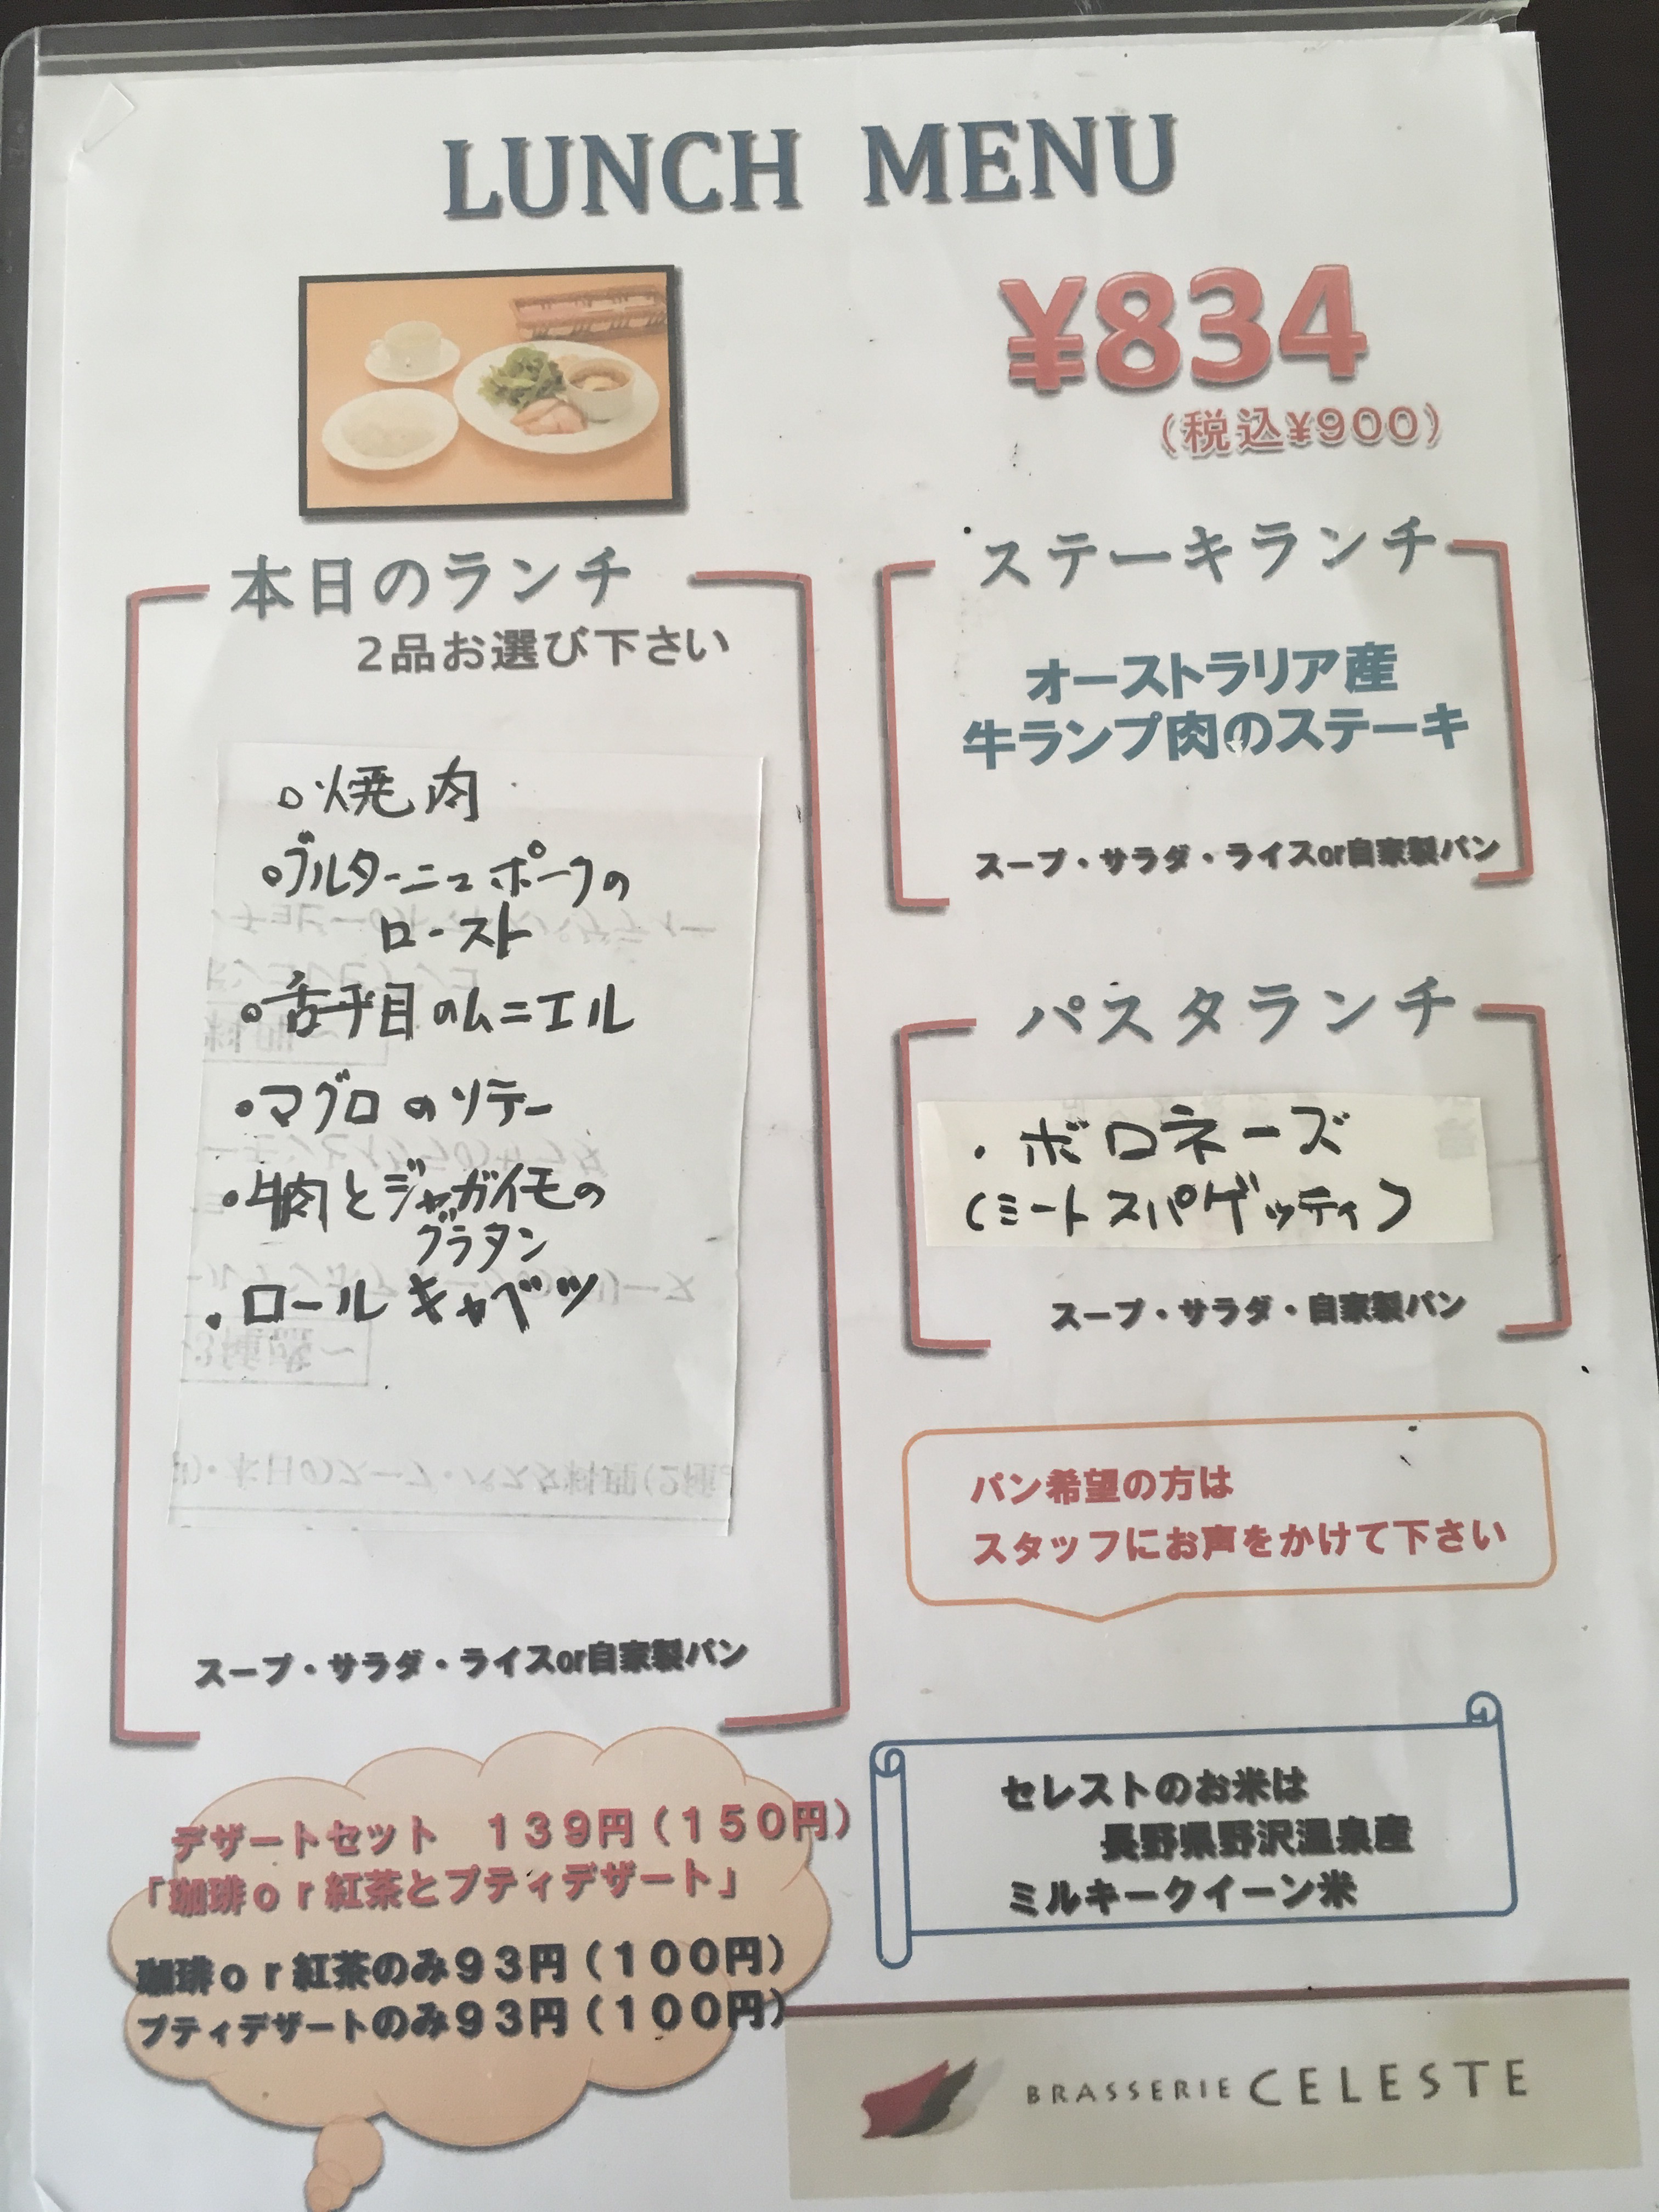 LUNCH MENU
¥834
(税込¥900)
本日のランチ
2品お選び下さい
○焼肉
○ブルターニュポークの
ロースト
○舌平目のムニエル
・マグロのソテー
・牛肉とジャガイモの
グラタン
・ロールキャベツ
スープ・サラダ・ライスor自家製パン
ステーキランチ
オーストラリア産
牛ランプ肉のステーキ
スープ・サラダ・ライスor自家製パン
パスタランチ
・ボロネーズ
(ミートスパゲッティ)
スープ・サラダ・自家製パン
パン希望の方は
スタッフにお声をかけて下さい
デザートセット 139円(150円)
「珈琲or紅茶とプティデザート」
珈琲or紅茶のみ93円(100円)
プティデザートのみ93円(100円)
セレストのお米は
長野県野沢温泉産
ミルキークイーン米
BRASSERIE CELESTE